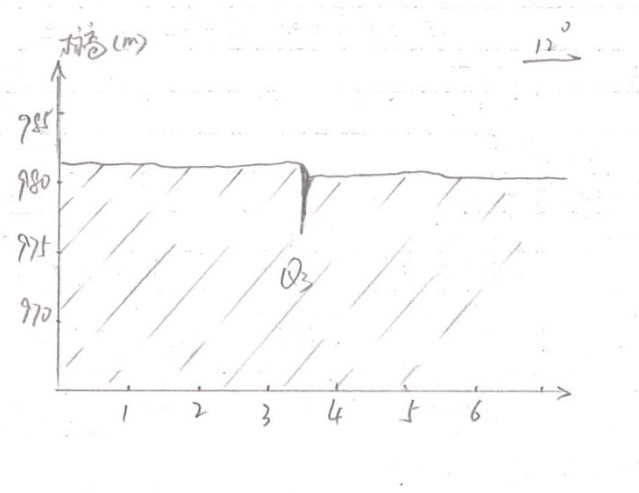 标高(m)
12°
985
980
975
970
Q3
1 2 3 4 5 6